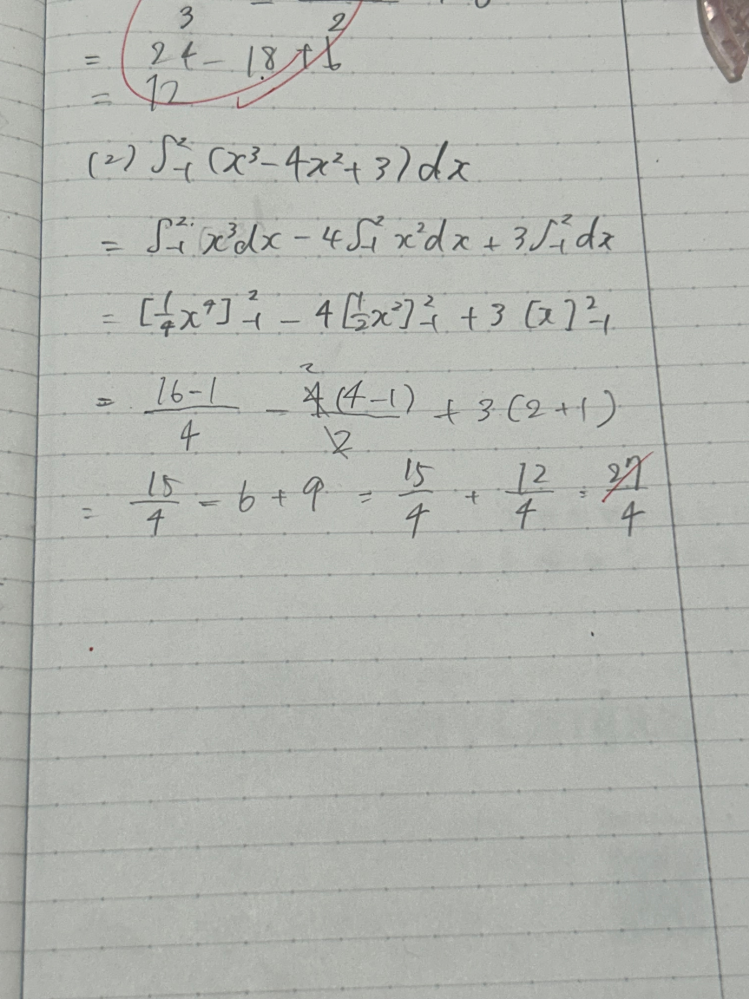 3 2
= 24 - 18 + 6
= 12
(2) ∫²₋₁ (x³ - 4x² + 3) dx
= ∫²₋₁ x³dx - 4∫²₋₁ x²dx + 3∫²₋₁ dx
= [1/4 x⁴]²₋₁ - 4[1/2 x²]²₋₁ + 3 [x]²₋₁
= (16-1)/4 - 4(4-1)/2 + 3(2+1)
= 15/4 - 6 + 9 = 15/4 + 12/4 = 27/4